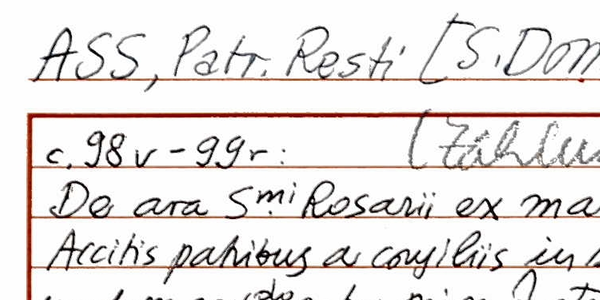 ASS, Patr. Resti [S. Dom
c. 98v - 99r: [Zählu
De ara Smi Rosarii ex ma
Accitis patribus a consiliis in